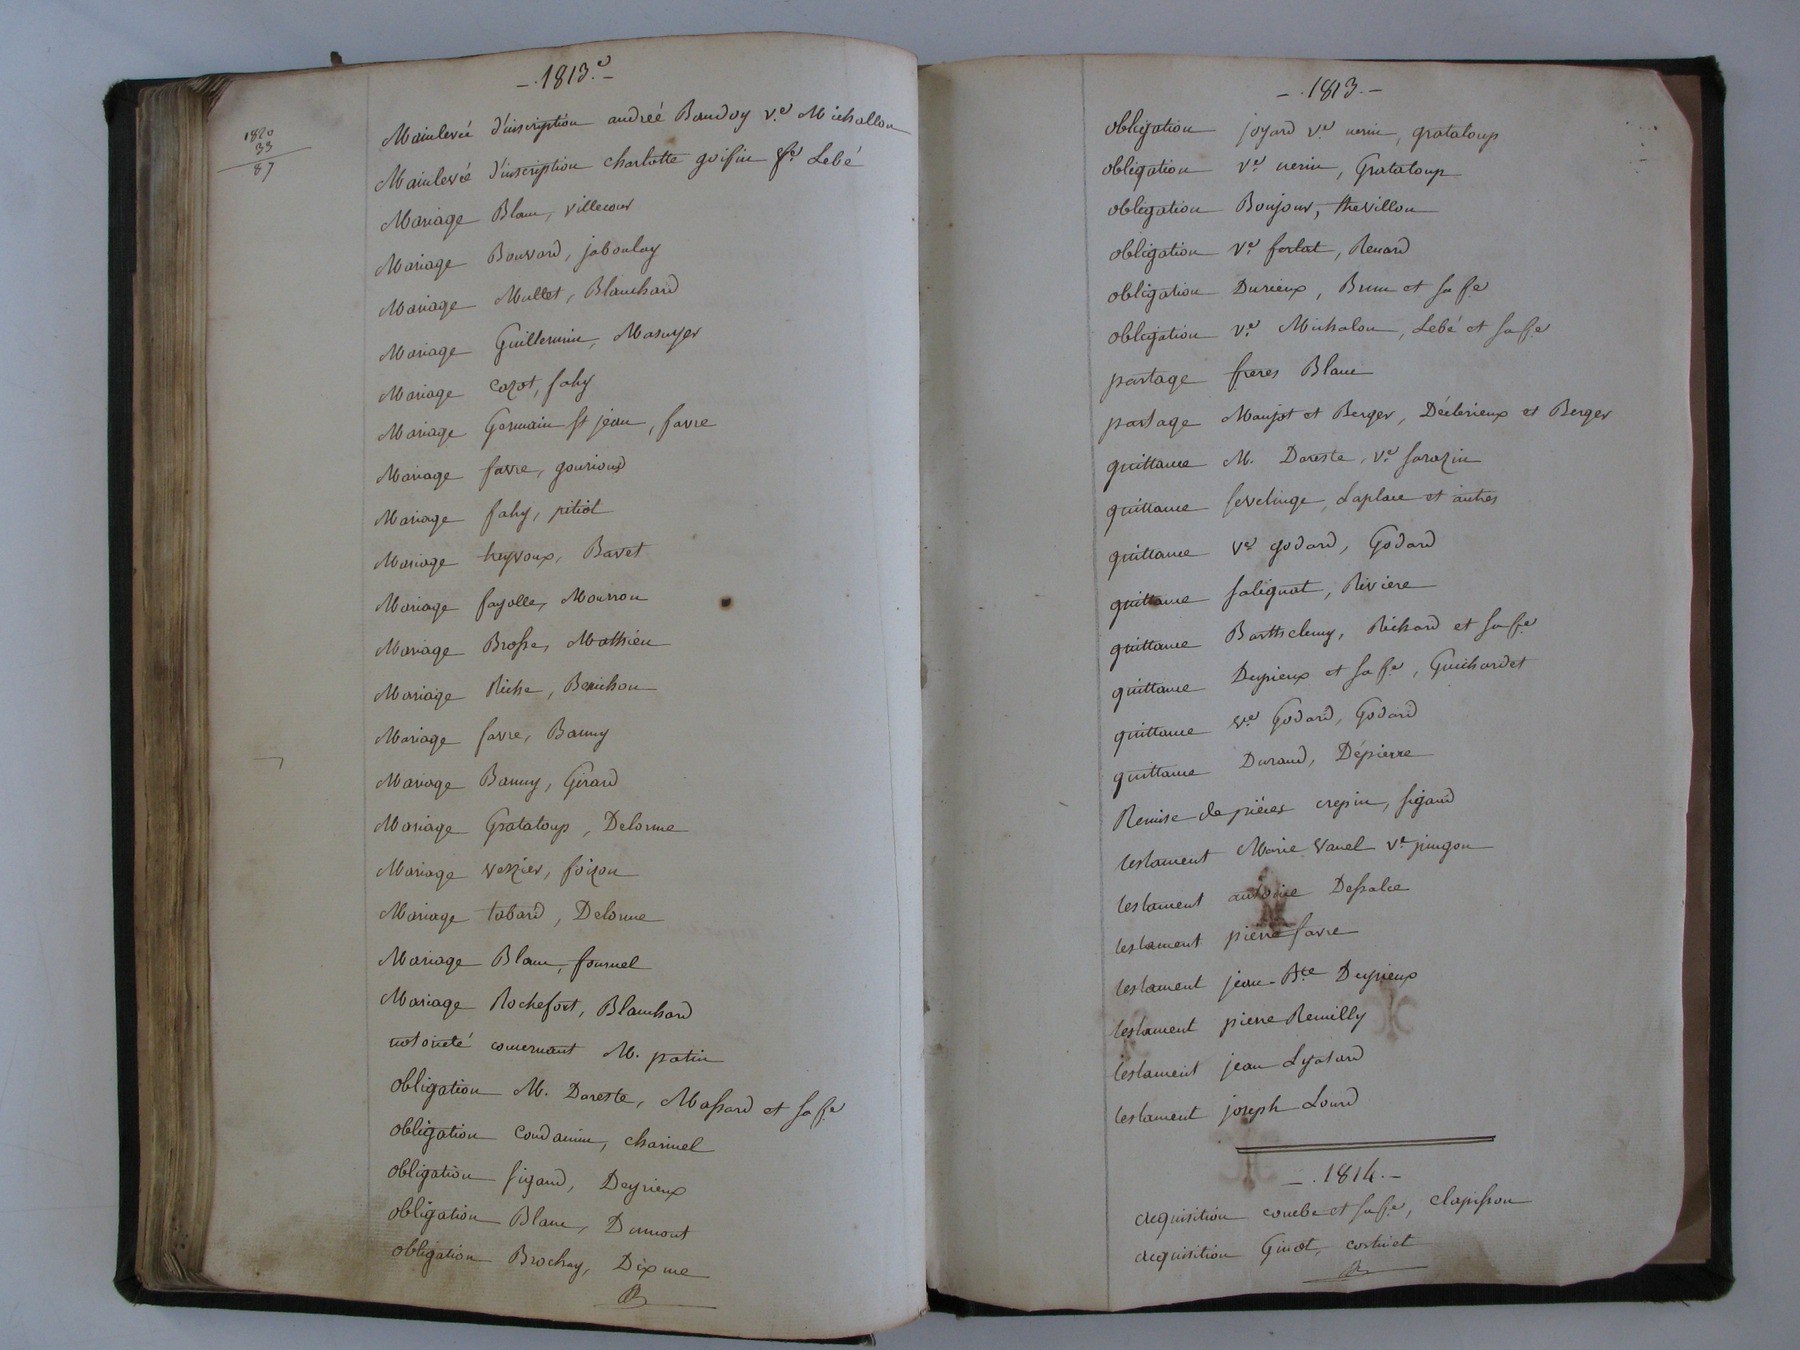 - . 1813.e -
1820
33
87
Mainlevée d'inscription andréé Baudoy ve. Michallon
Mainlevée d'inscription charlotte goifin fe. Lebé
Mariage Blanc, villecour
Mariage Bouvard, jaboulay
Mariage Mullet, Blanchard
Mariage Guillermin, Masuyer
Mariage cozot, fahy
Mariage Germain st jean, favre
Mariage favre, gourioud
Mariage fahy, pitiot
Mariage huyvoux, Bavet
Mariage fayolle, Mourron
Mariage Brosse, Mathieu
Mariage Riche, Benichon
Mariage favre, Banny
Mariage Banny, Girard
Mariage Grataloup, Delorme
Mariage verzier, foizon
Mariage tabard, Delorme
Mariage Blanc, fournel
Mariage Rochefort, Blanchard
notorieté concernant M. patin
obligation M. Dareste, Massard et sa fe.
obligation Condamin, charmel
obligation sigaud, Deyrieux
obligation Blanc, Dumont
obligation Brochay, Dixme
- . 1813. -
obligation joyard ve nerin, grataloup
obligation ve. nerin, Grataloup
obligation Boujour, thevillon
obligation ve. forlat, Renard
obligation Durieux, Brun et sa fe
obligation ve. Michalon, Lebé et sa fe
partage freres Blanc
partage Manjot et Berger, Déclerieux et Berger
quittance M. Dareste, ve. sarazin
quittance sevelinge, Laplace et autres
quittance ve godard, Godard
quittance salignat, Riviere
quittance Barthelemy, Richard et sa fe
quittance Deyrieux et sa fe, Guichardet
quittance ve. Godard, Godard
quittance Durand, Dépierre
Remise de pièces crepin, sigaud
testament Marie vanel ve pingon
testament antoine Dessalce
testament pierre favre
testament jean-Bte Deyrieux
testament pierre Remilly
testament jean Lyatard
testament joseph Lourd
- . 1814. -
acquisition combe et sa fe, clapisson
acquisition Ginot, cortinet